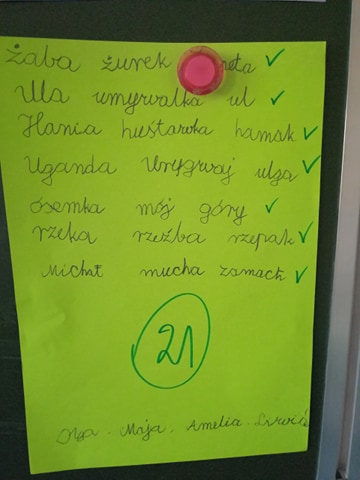 żaba żurek
Ula umywalka ul
Hania huśtawka hamak
Uganda Urugwaj ulga
ósemka mój góry
rzeka rzeźba rzepak
Michał mucha zamach
21
Olga . Maja . Amelia .